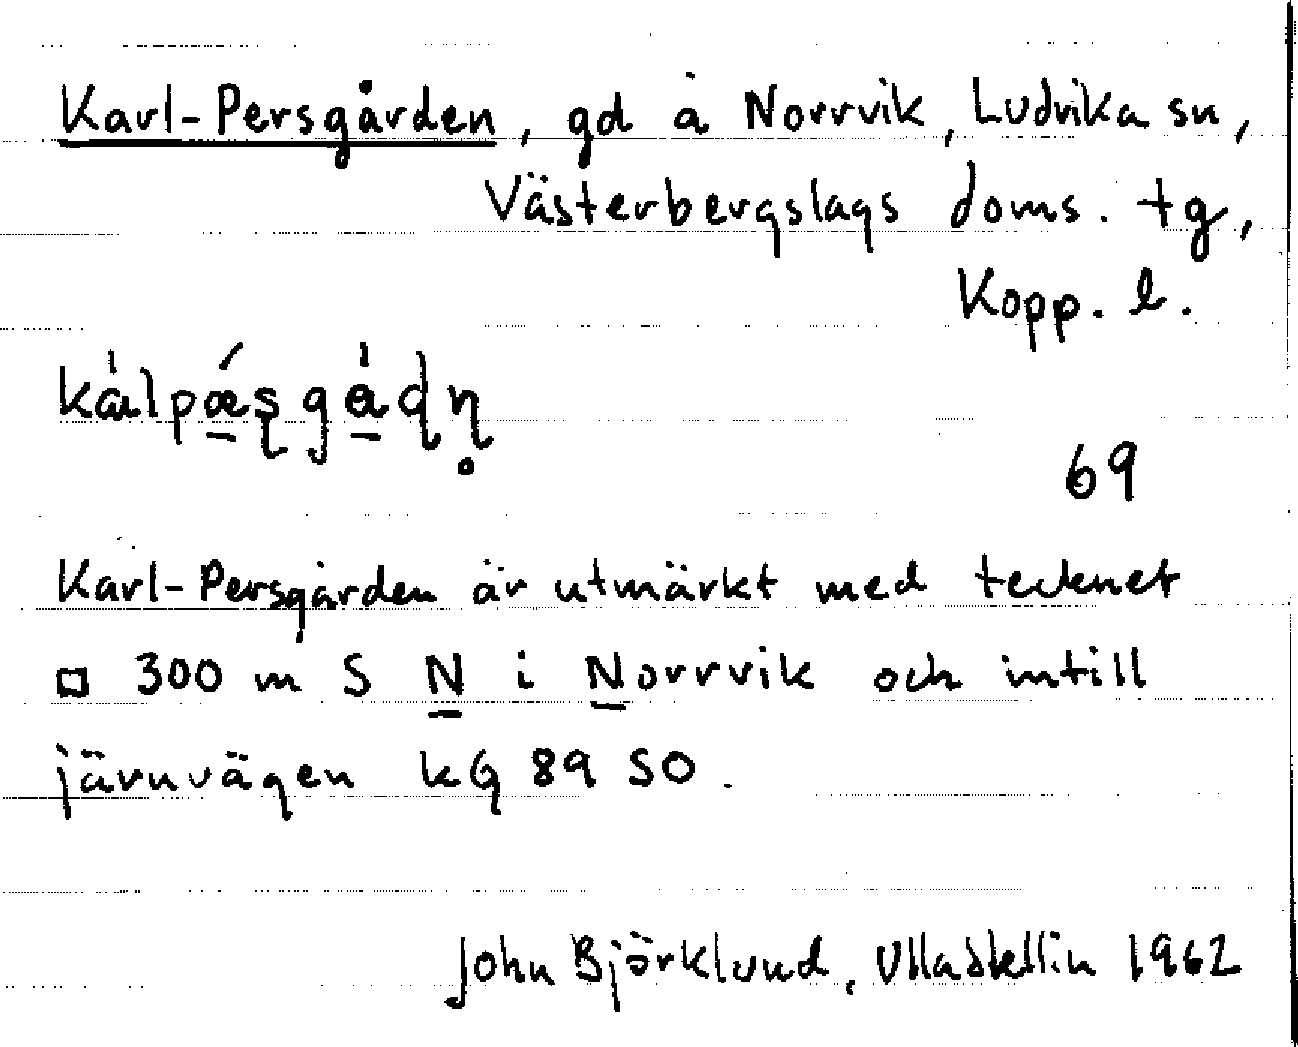 Karl-Persgården, gd å Norrvik, Ludvika sn,
Västerbergslags doms. tg,
Kopp. l.
69
Karl-Persgården är utmärkt med tecknet
□ 300 m S N i Norrvik och intill
järnvägen kG 89 SO.
John Björklund, Ulla Stellin 1962